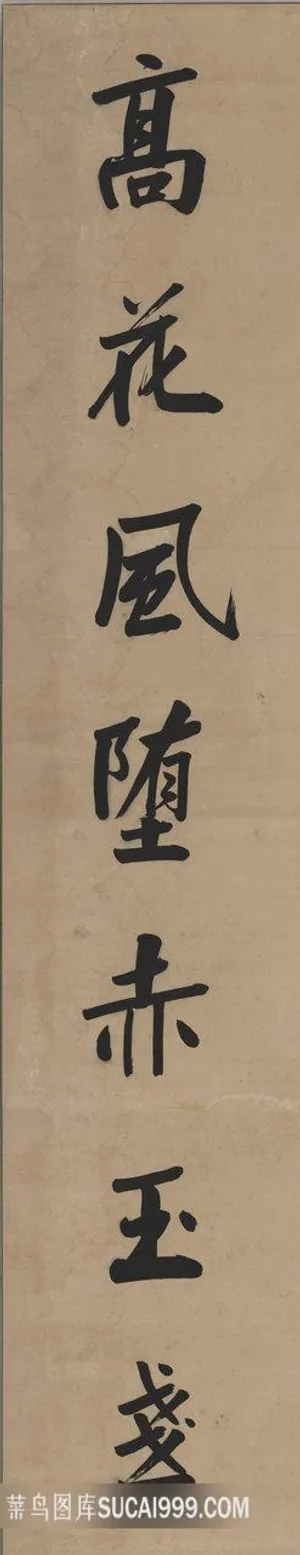 髙花風堕赤玉盞
菜鸟图库SUCAI999.COM